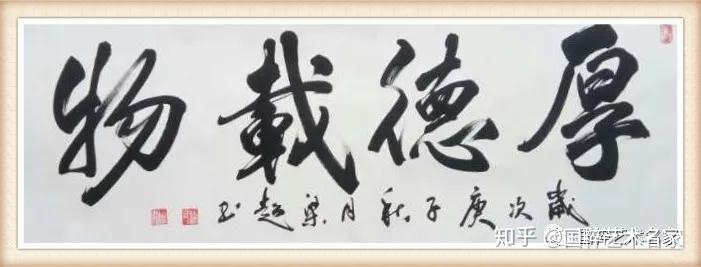 厚德載物
歲次庚子秋月梁超书
知乎 @国粹艺术名家